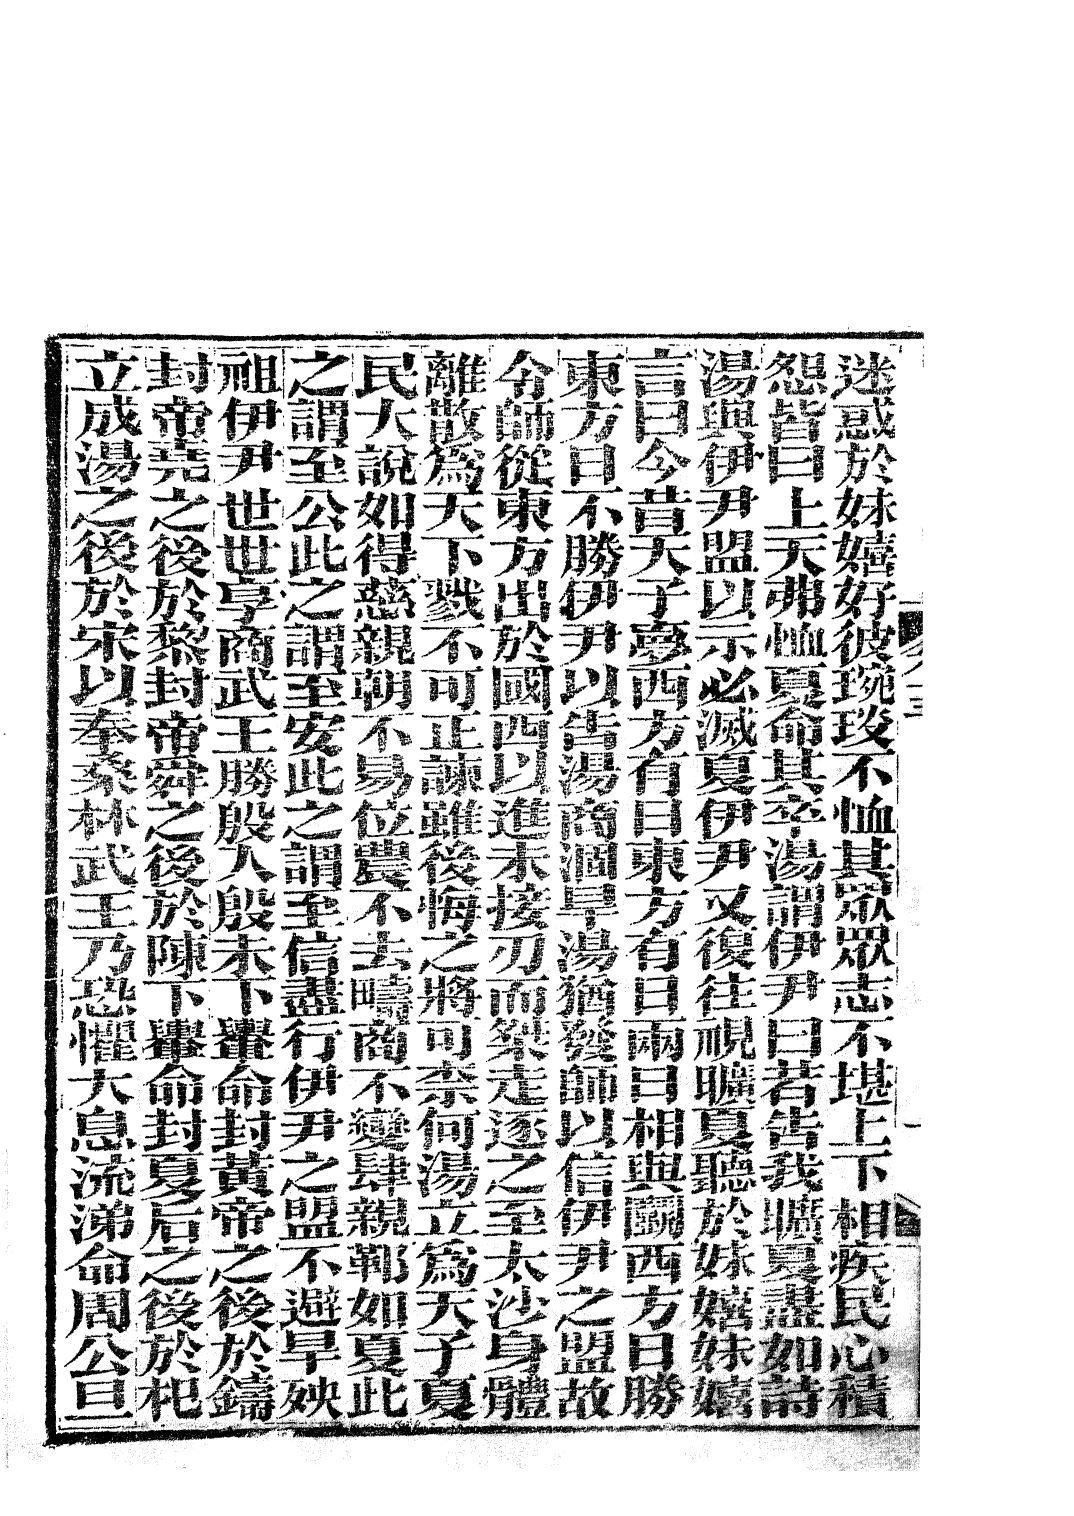 迷惑於妹嬉好彼琬琰不恤其眾眾志不堪上下相疾民心積
怨皆曰上天弗恤夏命其卒湯謂伊尹曰若告我曠夏盡如詩
湯與伊尹盟以示必滅夏伊尹又復往視曠夏聽於妹嬉妹嬉
言曰今昔天子夢西方有日東方有日兩日相與鬭西方日勝
東方日不勝伊尹以告湯商涸旱湯猶發師以信伊尹之盟故
令師從東方出於國西以進未接刃而桀走逐之至大沙身體
離散為天下戮不可正諫雖後悔之將可柰何湯立為天子夏
民大說如得慈親朝不易位農不去疇商不變肆親郼如夏此
之謂至公此之謂至安此之謂至信盡行伊尹之盟不避旱殃
祖伊尹世世享商武王勝殷入殷未下轝命封黃帝之後於鑄
封帝堯之後於黎封帝舜之後於陳下轝命封夏后之後於杞
立成湯之後於宋以奉桑林武王乃恐懼大息流涕命周公旦